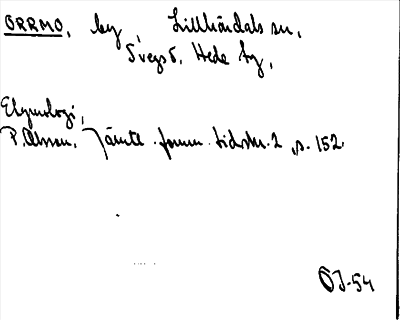 ORRMO, by, Lillhärdals sn,
Svegs d, Hede tg,
Etymologi,
P. Olsson, Jämtl. fornm. tidskr. 2, s. 152.
ÖJ-54